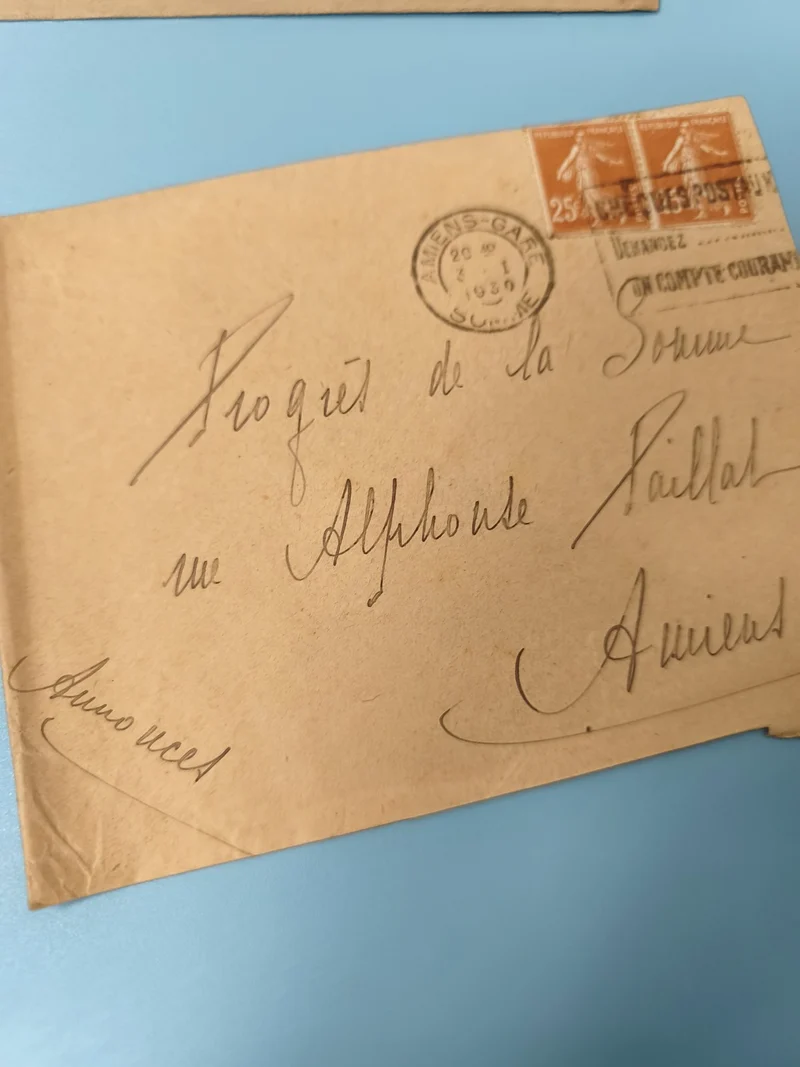 REPUBLIQUE FRANÇAISE
REPUBLIQUE FRANÇAISE
25ᶜ
CHEQUES POSTAUX
DEMANDEZ
UN COMPTE COURANT
AMIENS-GARE
20 H
3 - I
1930
SOMME
Progrès de la Somme
rue Alphonse Paillat
Amiens
Annonces